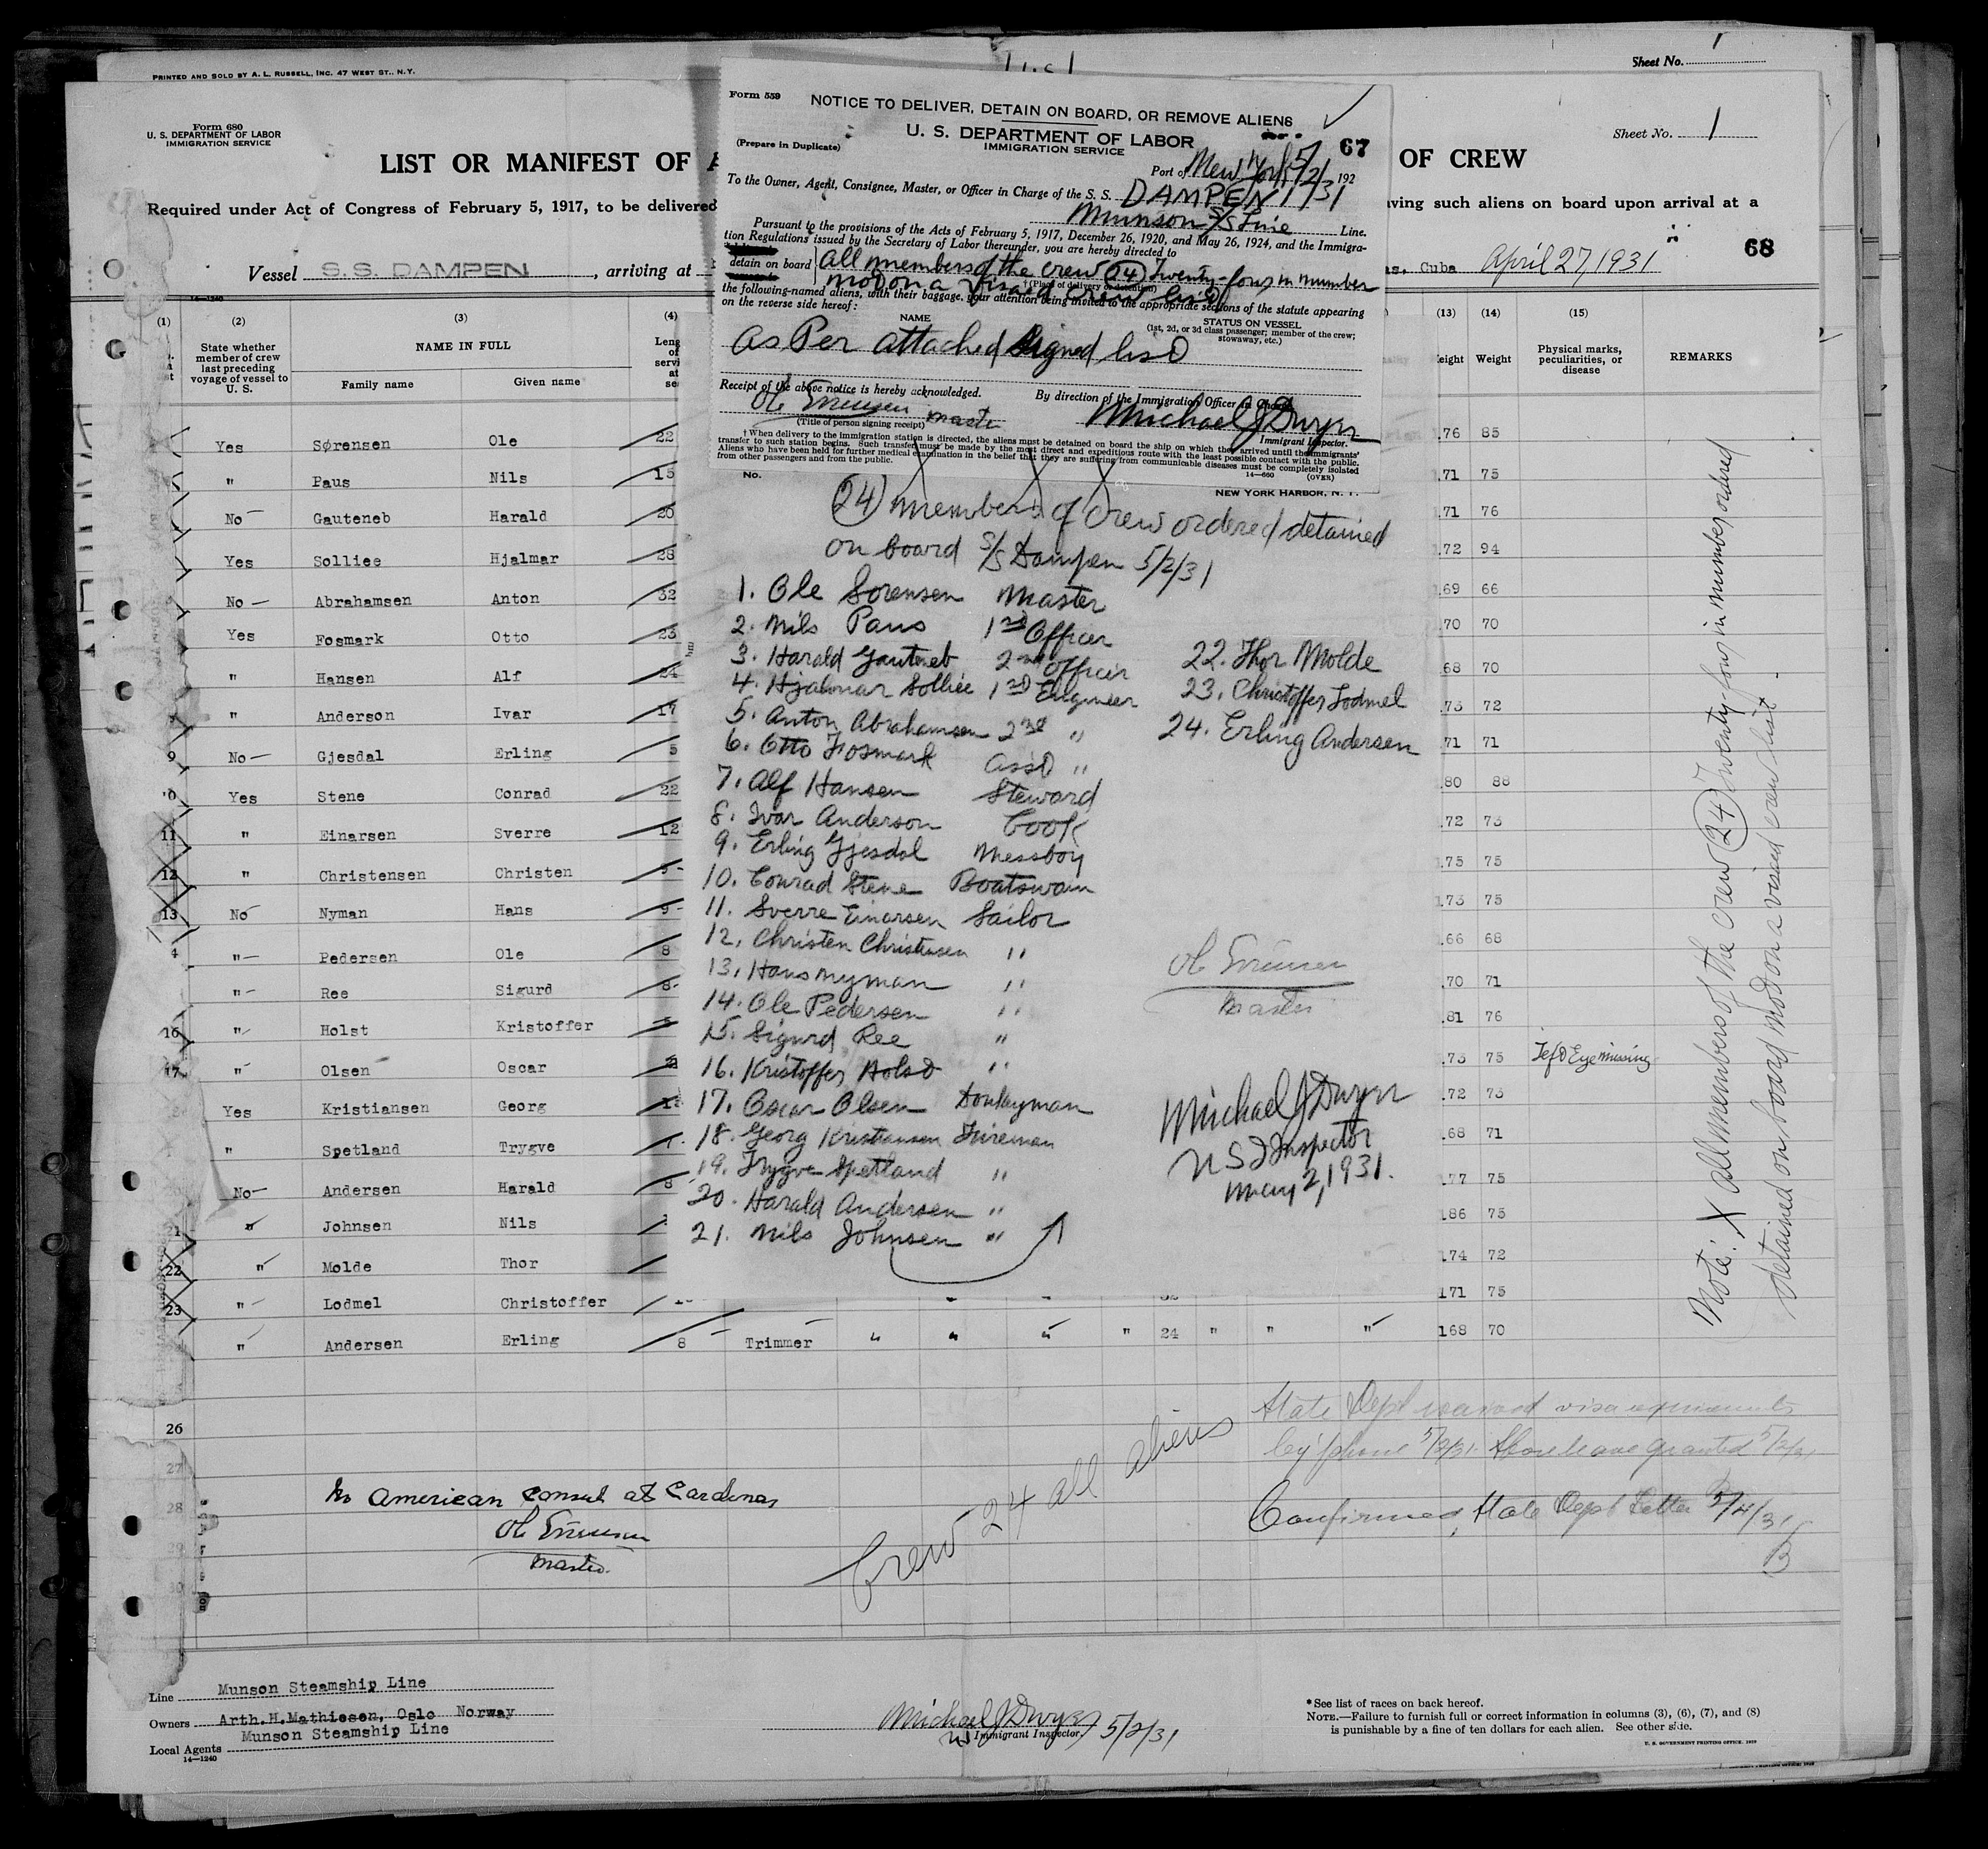 PRINTED AND SOLD BY A. L. RUSSELL, INC. 47 WEST ST., N. Y.
Sheet No. 1
Form 680
U. S. DEPARTMENT OF LABOR
IMMIGRATION SERVICE
Sheet No. 1
LIST OR MANIFEST OF A
OF CREW
68
Required under Act of Congress of February 5, 1917, to be delivered
ving such aliens on board upon arrival at a
Vessel S.S. DAMPEN, arriving at
as, Cuba April 27, 1931
14—1240
Form 559
NOTICE TO DELIVER, DETAIN ON BOARD, OR REMOVE ALIENS
U. S. DEPARTMENT OF LABOR
IMMIGRATION SERVICE
67
(Prepare in Duplicate)
Port of New York 5/2/31 192
To the Owner, Agent, Consignee, Master, or Officer in Charge of the S. S. DAMPEN
Munson S/S Line Line.
Pursuant to the provisions of the Acts of February 5, 1917, December 26, 1920, and May 26, 1924, and the Immigra-
tion Regulations issued by the Secretary of Labor thereunder, you are hereby directed to
detain on board All members of the crew (24) Twenty-four in number
not on a visaed crew list
†(Place of delivery or detention)
the following-named aliens, with their baggage, your attention being invited to the appropriate sections of the statute appearing
on the reverse side hereof:
NAME
STATUS ON VESSEL
(1st, 2d, or 3d class passenger; member of the crew;
stowaway, etc.)
As Per attached signed list
Receipt of the above notice is hereby acknowledged.
By direction of the Immigration Officer in Charge
Ole Sørensen master
(Title of person signing receipt)
Michael J Dwyer
Immigrant Inspector.
† When delivery to the immigration station is directed, the aliens must be detained on board the ship on which they arrived until the immigrants'
transfer to such station begins. Such transfer must be made by the most direct and expeditious route with the least possible contact with the public.
Aliens who have been held for further medical examination in the belief that they are suffering from communicable diseases must be completely isolated
from other passengers and from the public.
14—660
(OVER)
No.
NEW YORK HARBOR, N. Y.
(24) members of crew ordered detained
on board S/S Dampen 5/2/31
1. Ole Sorensen Master
2. Nils Paus 1st Officer
3. Harald Gauteneb 2nd Officer
4. Hjalmar Solliee 1st Engineer
5. Anton Abrahamsen 2nd "
6. Otto Fosmark Ass't "
7. Alf Hansen Steward
8. Ivar Anderson Cook
9. Erling Gjesdal Messboy
10. Conrad Stene Boatswain
11. Sverre Einarsen Sailor
12. Christen Christensen "
13. Hans Nyman "
14. Ole Pedersen "
15. Sigurd Ree "
16. Kristoffer Holst "
17. Oscar Olsen Donkeyman
18. Georg Kristiansen Fireman
19. Trygve Spetland "
20. Harald Andersen "
21. Nils Johnsen "
22. Thor Molde
23. Christoffer Lodmel
24. Erling Andersen
Ole Sørensen
Master
Michael J Dwyer
U S I Inspector
May 2, 1931.
(1) (2) (3) (4) (13) (14) (15)
State whether
member of crew
last preceding
voyage of vessel to
U. S.
NAME IN FULL
Family name Given name
eight Weight
Physical marks,
peculiarities, or
disease
REMARKS
Yes Sørensen Ole 22 176 85
" Paus Nils 15 171 75
No Gauteneb Harald 20 171 76
Yes Solliee Hjalmar 28 172 94
No Abrahamsen Anton 32 169 66
Yes Fosmark Otto 23 170 70
" Hansen Alf 24 168 70
" Anderson Ivar 17 173 72
9 No Gjesdal Erling 5 171 71
Yes Stene Conrad 22 180 88
11 " Einarsen Sverre 12 172 73
12 " Christensen Christen 9 175 75
13 No Nyman Hans 9 173 75
" Pedersen Ole 8 166 68
" Ree Sigurd 8 170 71
16 " Holst Kristoffer 5 181 76
17 " Olsen Oscar 173 75 Left Eye missing
Yes Kristiansen Georg 172 73
" Spetland Trygve 168 71
No Andersen Harald 8 177 75
21 " Johnsen Nils 186 75
22 " Molde Thor 174 72
23 " Lodmel Christoffer 171 75
" Andersen Erling 8 Trimmer " " " " 24 " " " 168 70
Note: X All members of the crew (24) Twenty four in number ordered
detained on board not on a visaed crew list.
26
27
28
29
30
State Dept waived visa requirements
by 'phone 5/2/31. Shore leave granted 5/2/31
Confirmed, State Dept Letter 5/4/31
B
Crew 24 all aliens
No American Consul at Cardenas
Ole Sørensen
Master.
Line Munson Steamship Line
Owners Arth.H.Mathiesen, Oslo Norway
Local Agents Munson Steamship Line
14—1240
Michael J Dwyer 5/2/31
US Immigrant Inspector.
* See list of races on back hereof.
NOTE.—Failure to furnish full or correct information in columns (3), (6), (7), and (8)
is punishable by a fine of ten dollars for each alien. See other side.
U. S. GOVERNMENT PRINTING OFFICE: 1929